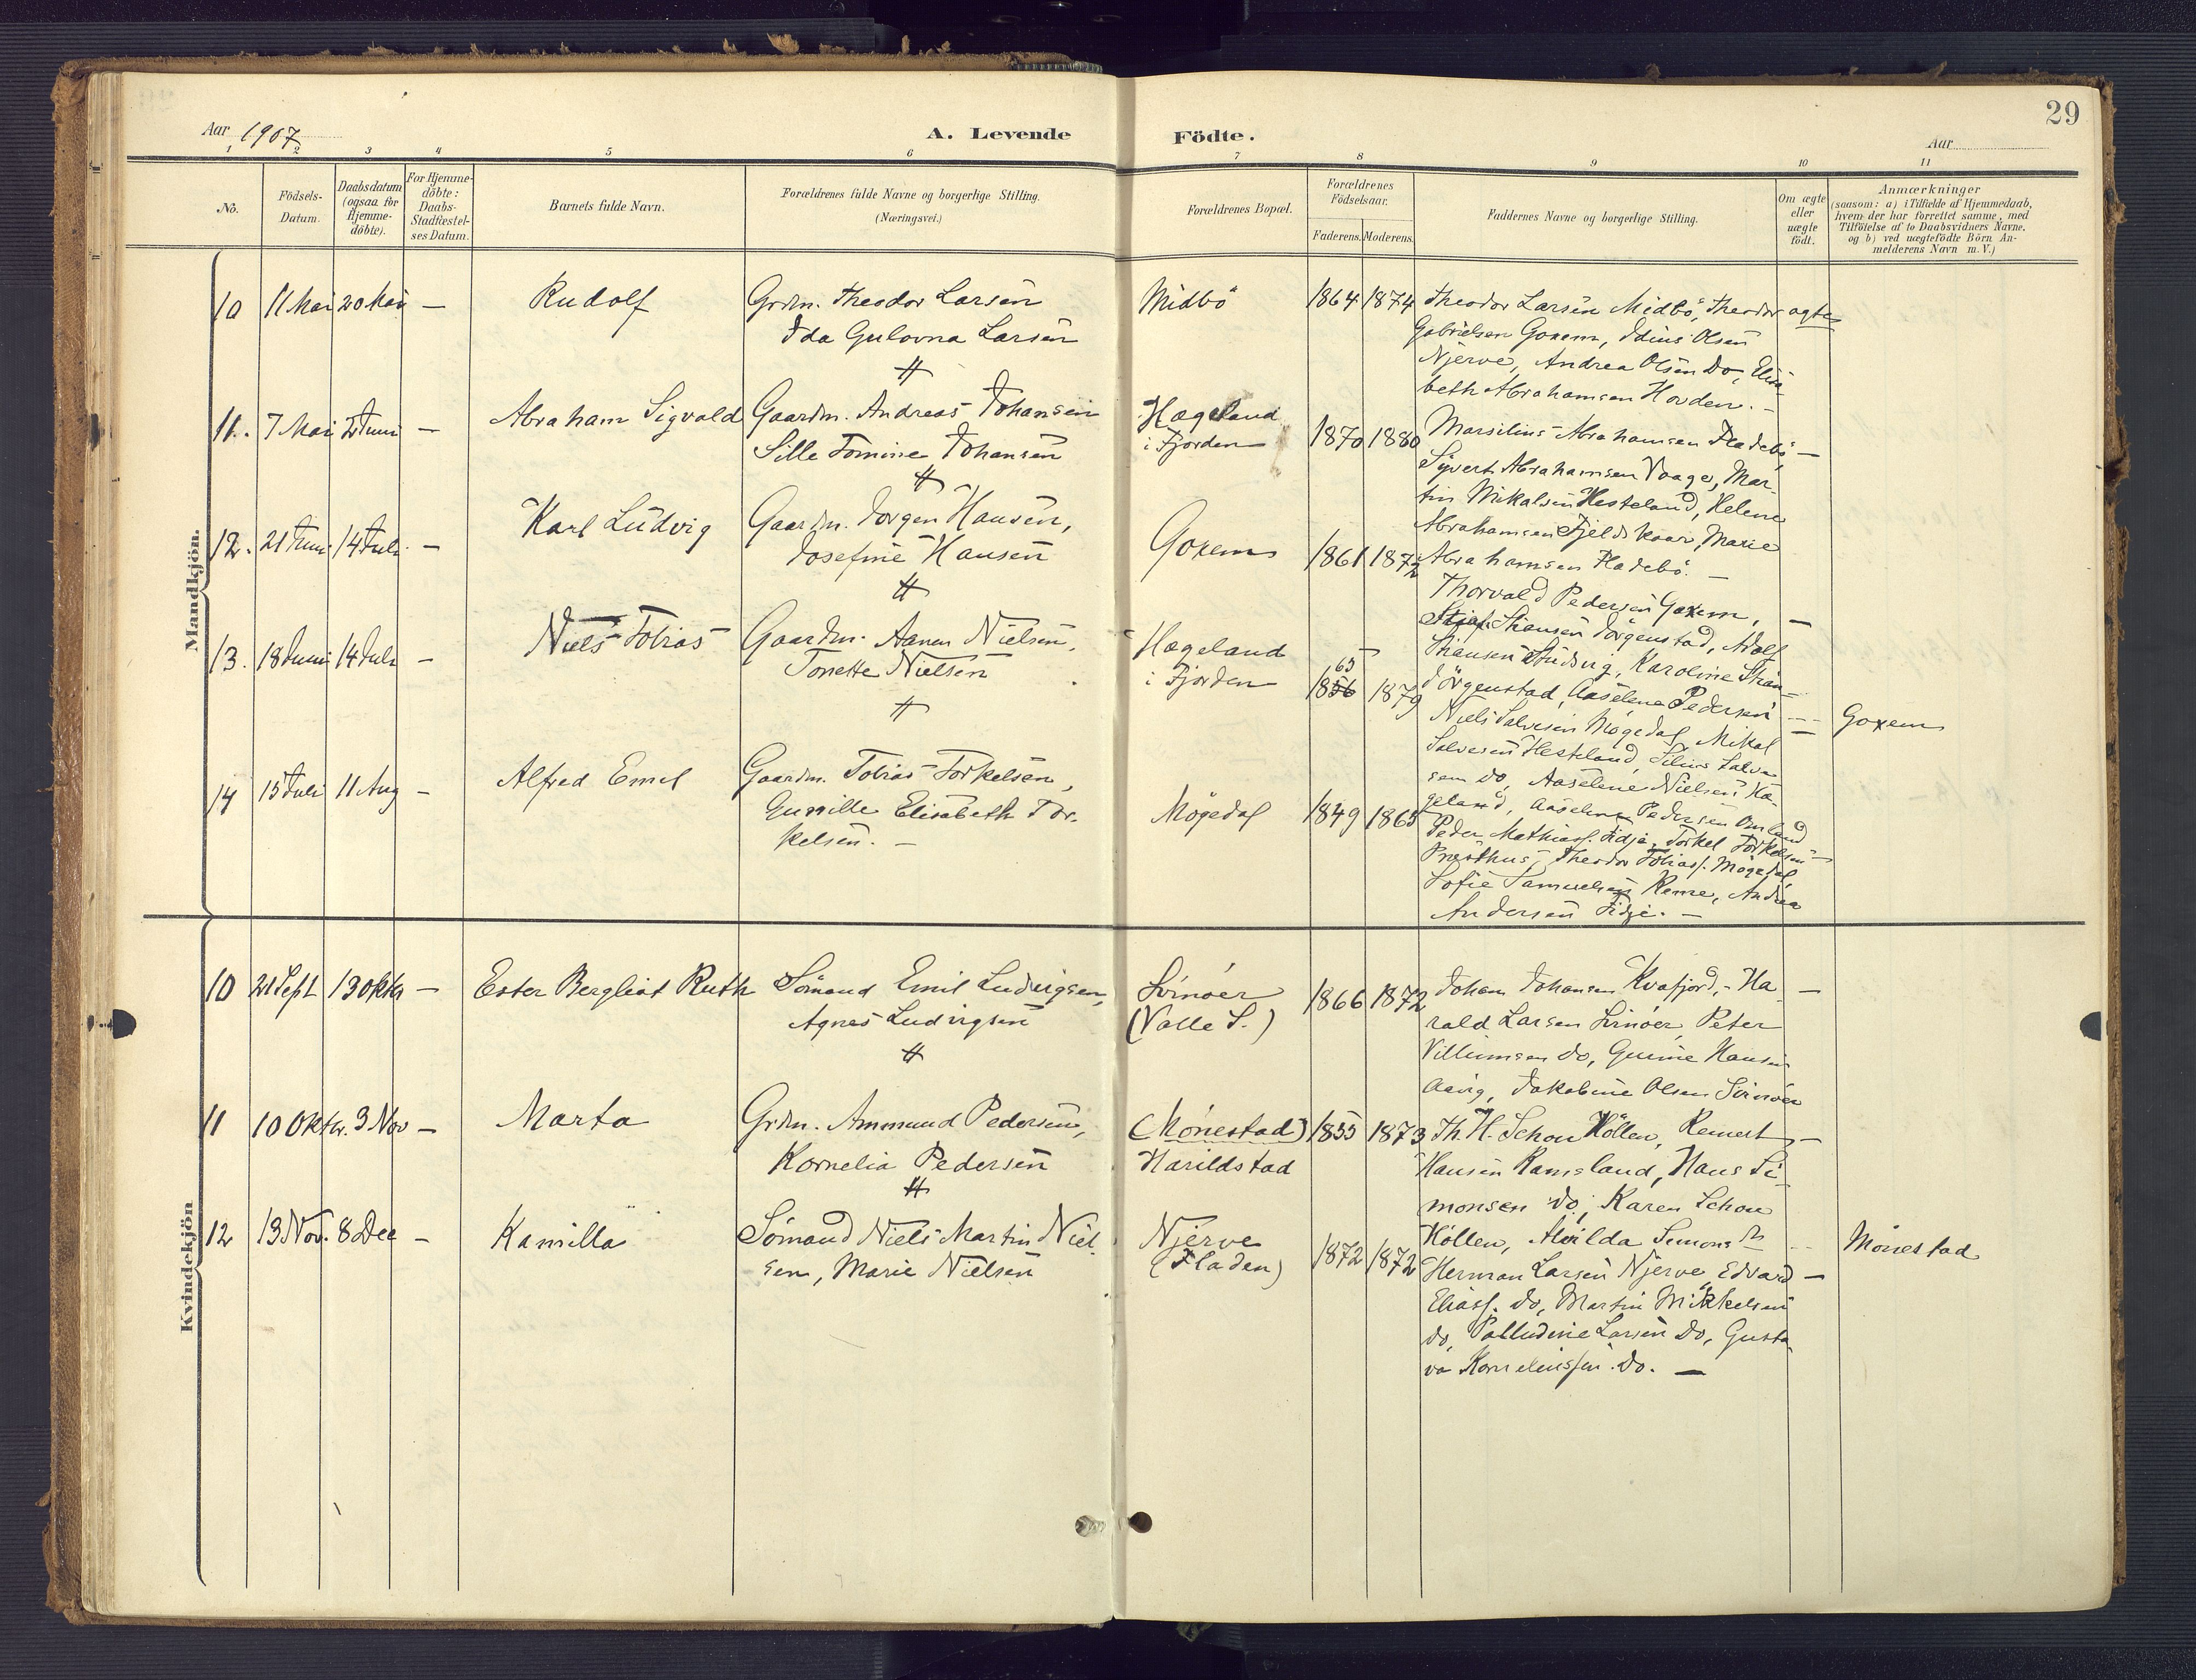 29
Aar 1907
A. Levende Födte.
Aar
1 2 3 4 5 6 7 8 9 10 11
No.
Födsels-Datum.
Daabsdatum (ogsaa for Hjemme-döbte).
For Hjemme-döbte: Daabs-Stadfæstel-ses Datum.
Barnets fulde Navn.
Forældrenes fulde Navne og borgerlige Stilling.
(Næringsvei.)
Forældrenes Bopæl.
Forældrenes Födselsaar.
Faderens. Moderens.
Faddernes Navne og borgerlige Stilling.
Om ægte eller uægte födt.
Anmærkninger
(saasom: a) i Tilfælde af Hjemmedaab,
hvem der har forrettet samme, med
Tilföielse af to Daabsvidners Navne,
og b) ved uægtefödte Börn An-
melderens Navn m. V.)
Mandkjön.
10 11 Mai 20 Mai — Rudolf
Grdm. Theodor Larsen
Ida Gulovna Larsen
Midbö 1864 1874
Theodor Larsen Midbö, Theodor ægte
Gabrielsen Goxem, Idius Olsen
Njerve, Andrea Olsen do, Elisa-
beth Abrahamsen Horden. —
11. 7 Mai 2 Juni — Abraham Sigvald
Gaardm. Andreas Johansen
Sille Tomine Johansen
Hægeland
i Fjorden 1870 1880
Marsilius Abrahamsen Fladebö, —
Sigvert Abrahamsen Vaage, Mar-
tin Mikalsen Hesteland, Helene
Abrahamsen Fjeldskaar, Marie
Abrahamsen Fladebö. —
12. 21 Juni 14 Juli — Karl Ludvig
Gaardm. Jörgen Hansen,
Josefine Hansen
Goxem 1861 1872
Thorvald Pedersen Goxem, —
Jörgenstad, Adolf
Karoline
Jörgenstad, Aaselene Pedersen — Goxem
13. 18 Juni 14 Juli — Niels Tobias
Gaardm. Aanen Nielsen,
Tonette Nielsen
Hægeland
i Fjorden 1856 65 1879
Niels Salvesen Mögedal, Mikal —
Salvesen Hesteland, Silius Salve-
sen do, Aaselene Nielsen Hæ-
geland, Aaselene Pedersen Omland
14 15 Juli 11 Aug — Alfred Emil
Gaardm. Tobias Torkelsen,
Gunille Elisabeth Tor-
kelsen. —
Mögedal 1849 1865
Peder Mathiass. Fidje, Torkel Torkelsen —
Præsthus, Theodor Tobiass. Mögedal
Sofie Samuelsen Rome, Andrea
Andersen Fidje. —
Kvindekjön
10 21 Sept 13 Oktr — Ester Bergliot Ruth
Sömand Emil Ludvigsen,
Agnes Ludvigsen
Svinöer
(Valle S.) 1866 1872
Johan Johansen Kvafjord, Ha- —
rald Larsen Svinöer, Peter
Villumsen do, Gurine Hansen
Aavig, Jakobine Olsen Svinöer
11 10 Oktr. 3 Nov — Marta
Grdm. Ammund Pedersen,
Kornelia Pedersen
(Mönestad)
Harildstad 1855 1873
Th. H. Schou Höllen, Reinert —
Hansen Ramsland, Hans Si-
monsen do, Karen Schou
Höllen, Alvilda Simons. — Mönestad
12 13 Nov. 8 Dec — Kamilla
Sömand Niels Martin Niel-
sen, Marie Nielsen
Njerve
(Fladen) 1872 1872
Herman Larsen Njerve, Edvard —
Eliass. do, Martin Mikkelsen
do, Palludine Larsen do, Gusta-
va Korneliussen do. —